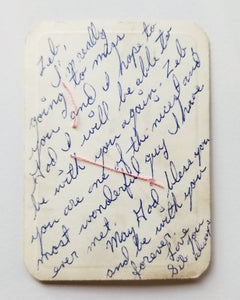 Zeb,
I'm really
going to miss
you and I hope to
God I will be able to
be with you again. Zeb
you are the nicest and
most wonderful guy I have
ever met. May God bless you
and be with you
forever. Love you